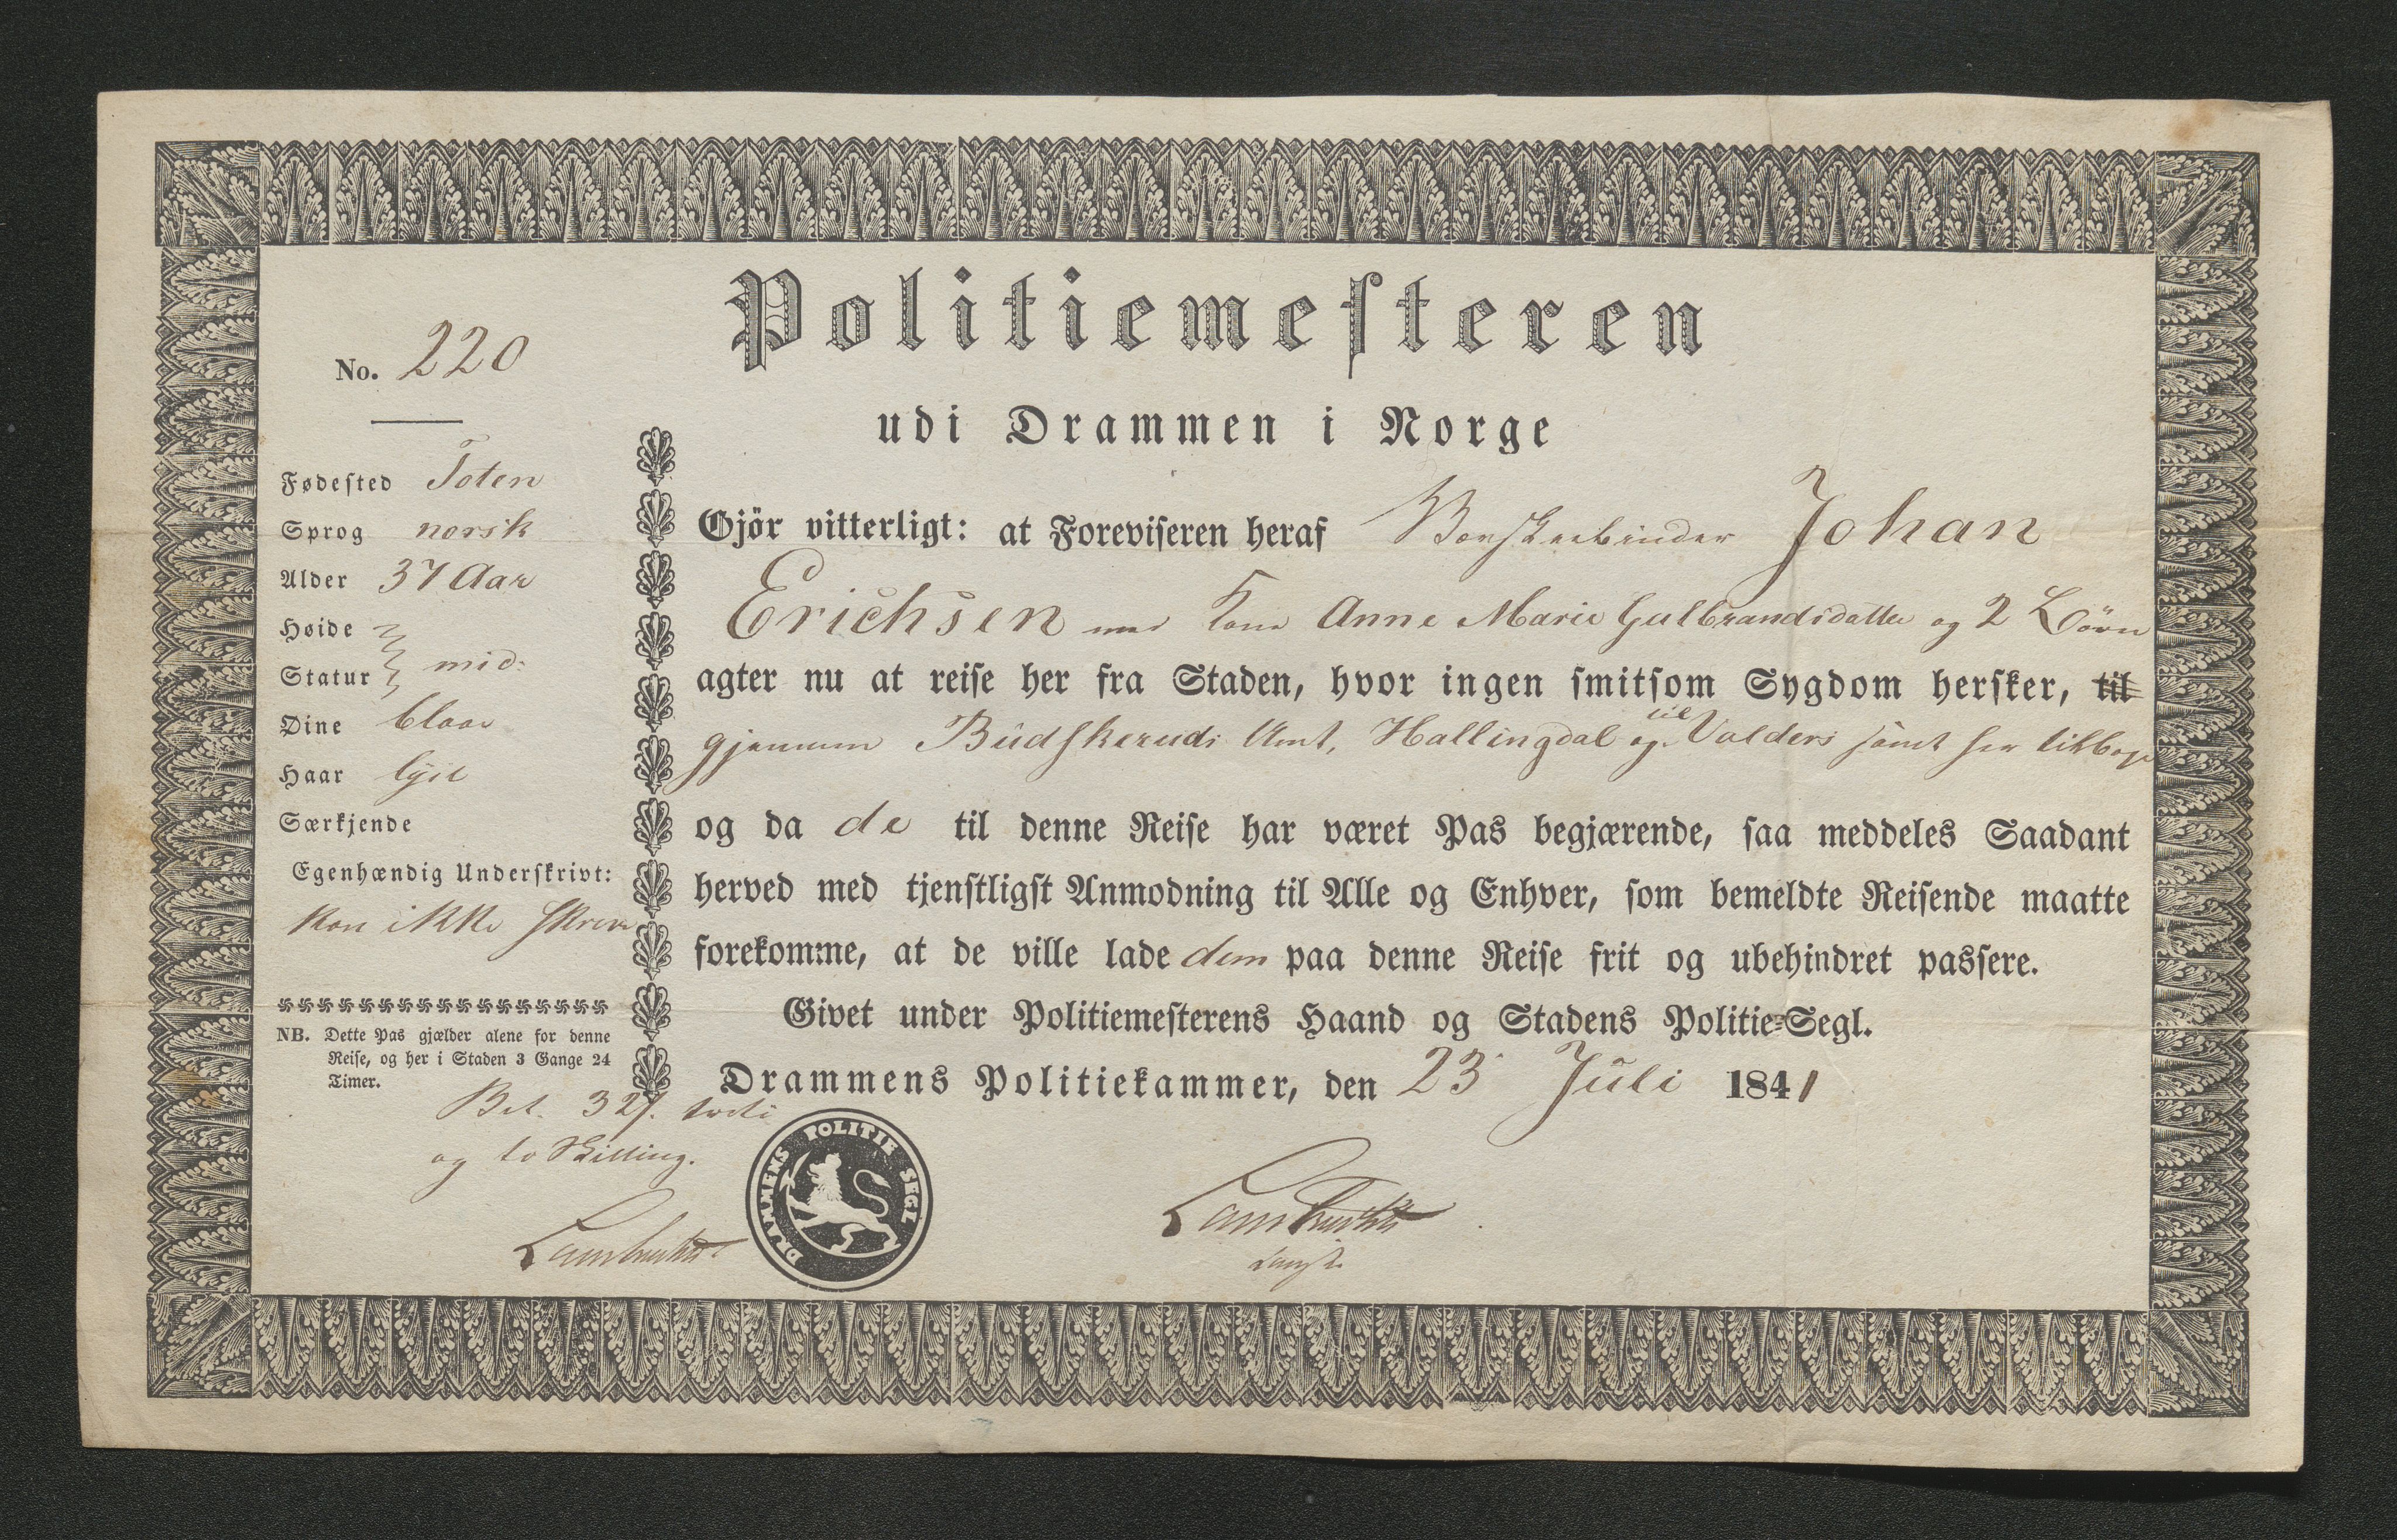 Politiemesteren
udi Drammen i Norge
No. 220
Fødested Toten
Sprog norsk
Alder 37 Aar
Høide
Statur mid:
Öine blaae
Haar lyst
Særkjende
Egenhændig Underskrivt:
kan ikke skrive
NB. Dette Pas gjælder alene for denne
Reise, og her i Staden 3 Gange 24
Timer.
Bet. 32 s. treti
og to Skilling.
Gjör vitterligt: at Foreviseren heraf Børstenbinder Johan
Erichsen med Kone Anne Marie Gulbrandsdatter og 2 Börn
agter nu at reise her fra Staden, hvor ingen smitsom Sygdom hersker, til
gjennem Budskeruds Amt, Hallingdal og til Valders samt her tilbage
og da de til denne Reise har været Pas begjærende, saa meddeles Saadant
herved med tjenstligst Anmodning til Alle og Enhver, som bemeldte Reisende maatte
forekomme, at de ville lade dem paa denne Reise frit og ubehindret passere.
Givet under Politiemesterens Haand og Stadens Politie-Segl.
Drammens Politiekammer, den 23 Juli 1841
DRAMMENS POLITIE SEGL